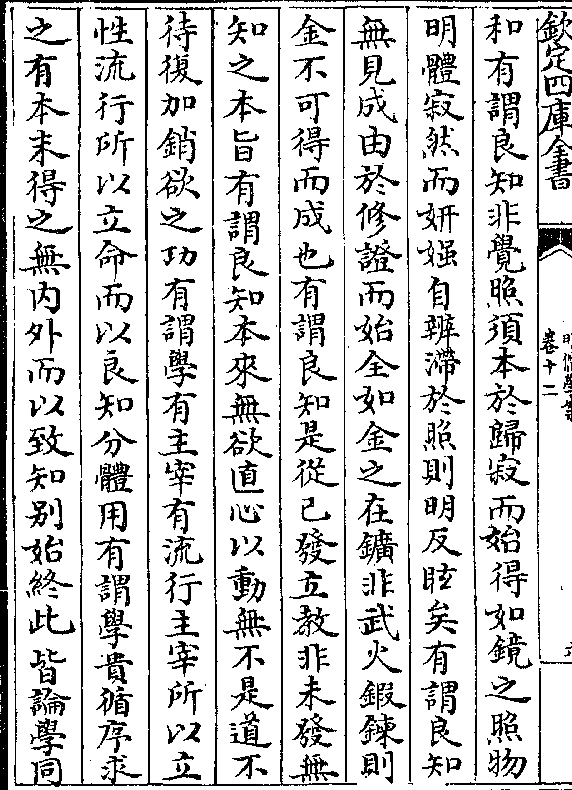 欽定四庫全書
卷十二
和有謂良知非覺照須本於歸寂而始得如鏡之照物
明體寂然而妍媸自辨滯於照則明反眩矣有謂良知
無見成由於修證而始全如金之在鑛非武火鍜鍊則
金不可得而成也有謂良知是從已發立教非未發無
知之本旨有謂良知本來無欲直心以動無不是道不
待復加銷欲之功有謂學有主宰有流行主宰所以立
性流行所以立命而以良知分體用有謂學貴循序求
之有本末得之無内外而以致知别始終此皆論學同